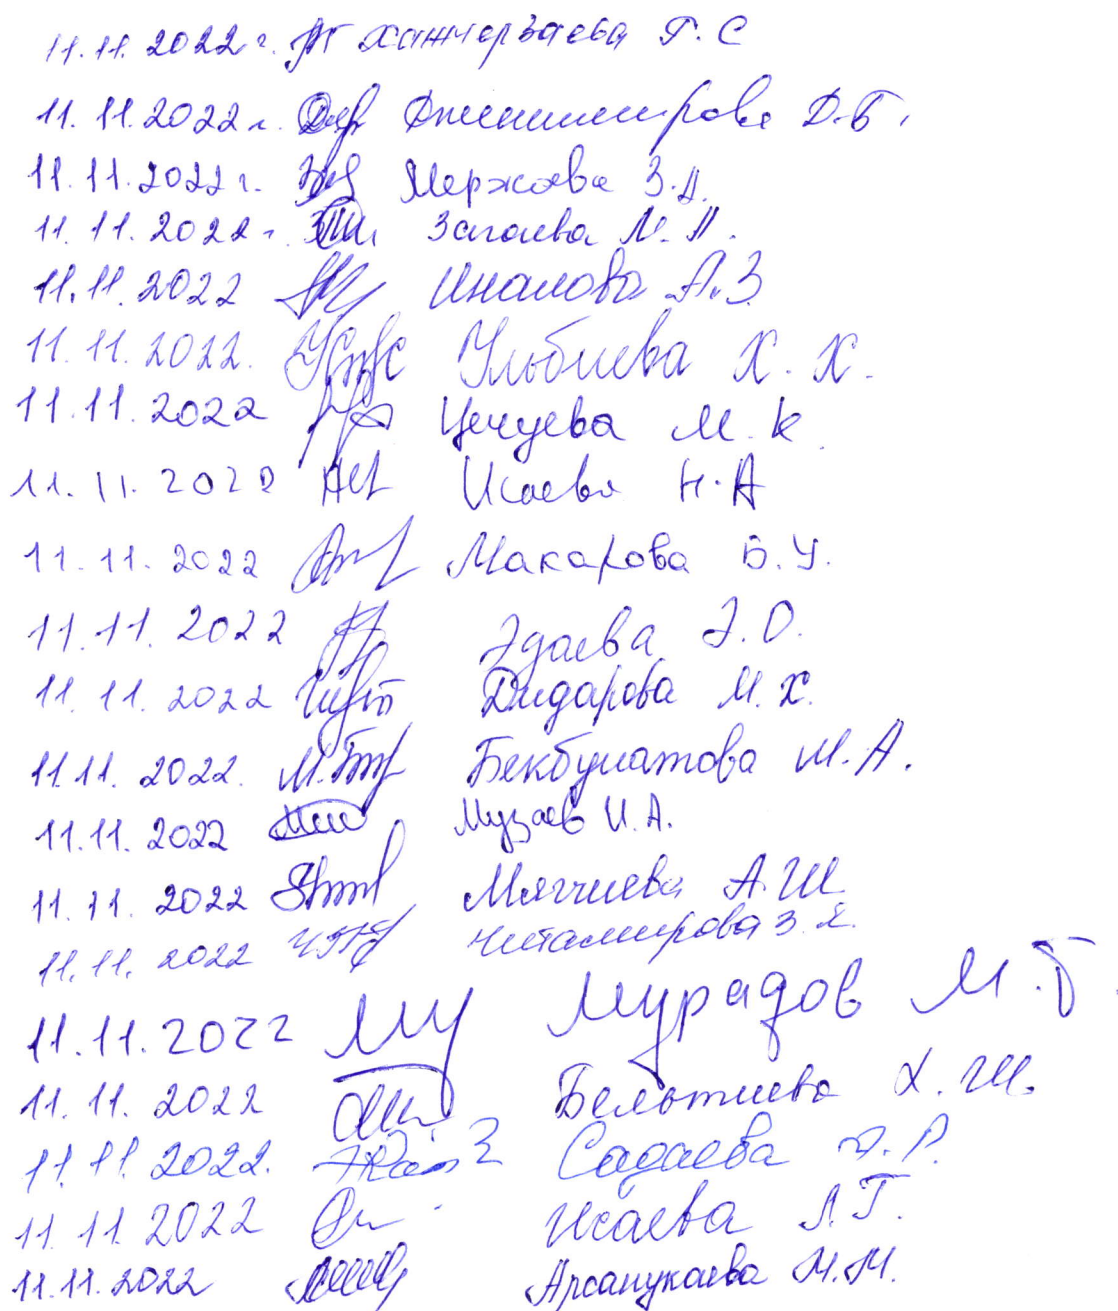 11.11.2022 г. Ханчерзаева Г. С
11.11.2022 г. Джеишемирова Д.Б.
11.11.2022 г. Мержоева З.А.
11.11.2022 г. Загаева М. А.
11.11.2022 Иналова А.З
11.11.2022. Ульбиева Х. Х.
11.11.2022 Цечуева М. К
11.11.2022 Исаева Н.А
11.11.2022 Макарова Б.У.
11.11.2022 Эдаева Э.О.
11.11.2022 Дидарова М.Х.
11.11.2022. Бекбулатова М.А.
11.11.2022 Музаев И.А.
11.11.2022 Мягчиева А.Ш
11.11.2022 Читамирова З.Х.
11.11.2022 Мурадов М.Б
11.11.2022 Бельтиева Х.Ш.
11.11.2022. Садаева Р.
11.11.2022 Исаева Л.Г.
11.11.2022 Арсанукаева М.М.